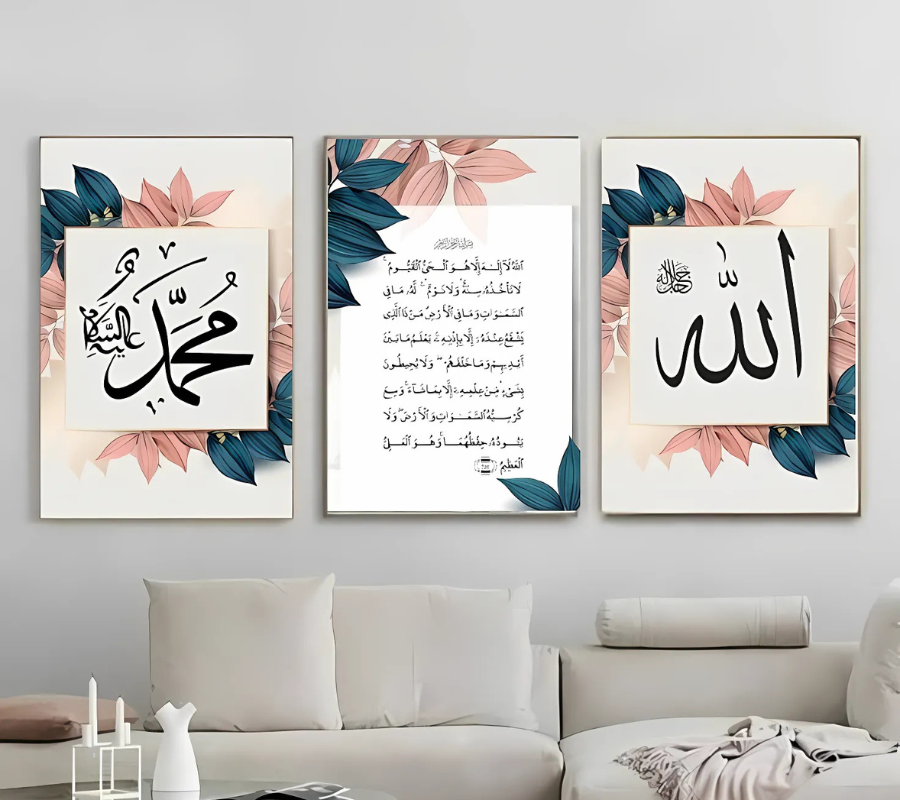 الله
جل جلاله
بسم الله الرحمن الرحيم
اللَّهُ لَآ إِلَٰهَ إِلَّا هُوَ الْحَيُّ الْقَيُّومُ ۚ
لَا تَأْخُذُهُ سِنَةٌ وَلَا نَوْمٌ ۚ لَّهُ مَا فِي
السَّمَٰوَٰتِ وَمَا فِي الْأَرْضِ ۗ مَن ذَا الَّذِي
يَشْفَعُ عِندَهُ إِلَّا بِإِذْنِهِ ۚ يَعْلَمُ مَا بَيْنَ
أَيْدِيهِمْ وَمَا خَلْفَهُمْ ۖ وَلَا يُحِيطُونَ
بِشَيْءٍ مِّنْ عِلْمِهِ إِلَّا بِمَا شَآءَ ۚ وَسِعَ
كُرْسِيُّهُ السَّمَٰوَٰتِ وَالْأَرْضَ ۖ وَلَا
يَـُٔودُهُ حِفْظُهُمَا ۚ وَهُوَ الْعَلِيُّ
الْعَظِيمُ
مُحَمَّد
عليه السلام